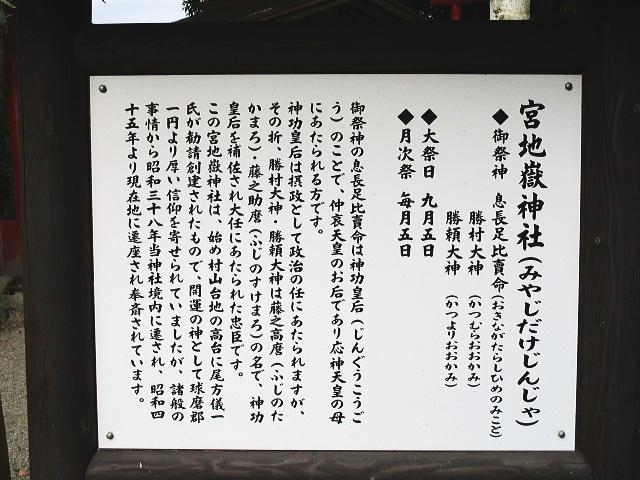 宮地嶽神社(みやじだけじんじゃ)
◆御祭神 息長足比賣命(おきながたらしひめのみこと)
勝村大神 (かつむらおおかみ)
勝頼大神 (かつよりおおかみ)
◆大祭日 九月五日
◆月次祭 毎月五日
御祭神の息長足比賣命は神功皇后(じんぐうこうご
う)のことで、仲哀天皇のお后であり応神天皇の母
にあたられる方です。
神功皇后は摂政として政治の任にあたられますが、
その折、勝村大神・勝頼大神は藤之高麿(ふじのた
かまろ)・藤之助麿(ふじのすけまろ)の名で、神功
皇后を補佐され大任にあたられた忠臣です。
この宮地嶽神社は、始め村山台地の高台に尾方儀一
氏が勧請創建されたもので、開運の神として球磨郡
一円より厚い信仰を寄せられていましたが、諸般の
事情から昭和三十八年当神社境内に遷され、昭和四
十五年より現在地に遷座され奉斎されています。